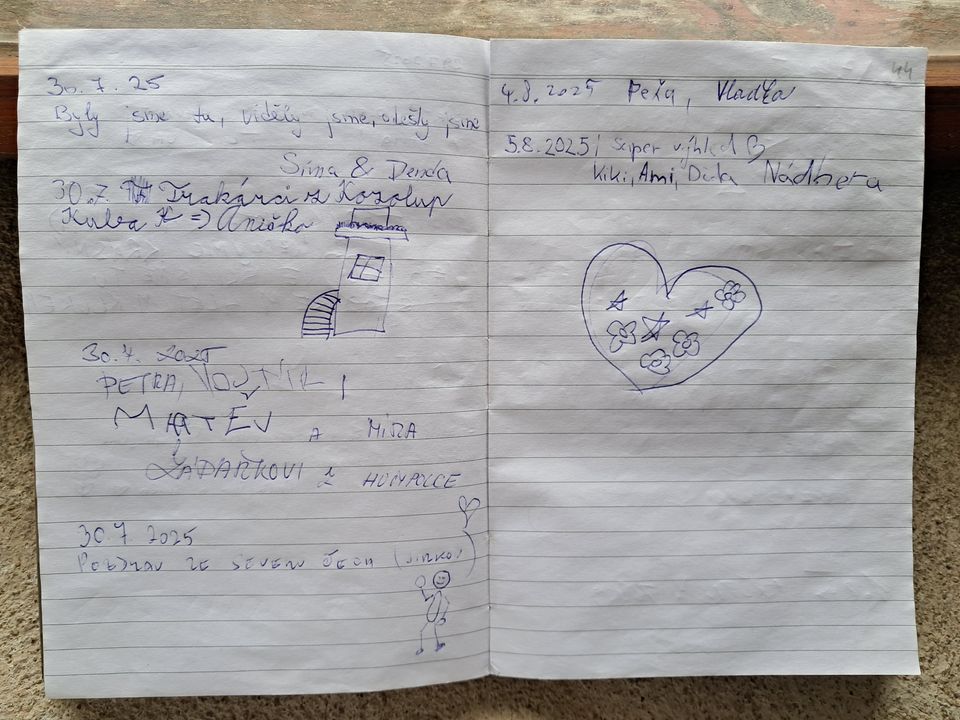 30.7.25
Byly jsme tu, viděly jsme, odešly jsme
Sima & Denča
30.7. Trakárci z Kozolup
(Kuba => Anička
30.7. 2025
PETRA, VOJTÍK,
MATĚJ A MÍRA
ZE HUMPOLCE
30.7.2025
POZDRAV ZE SEVERU ČECH (JIRKOV)
44
4.8.2025 Peťa, Vlaďka
5.8.2025 super výhled
Kiki, Ami, Dita Nádhera